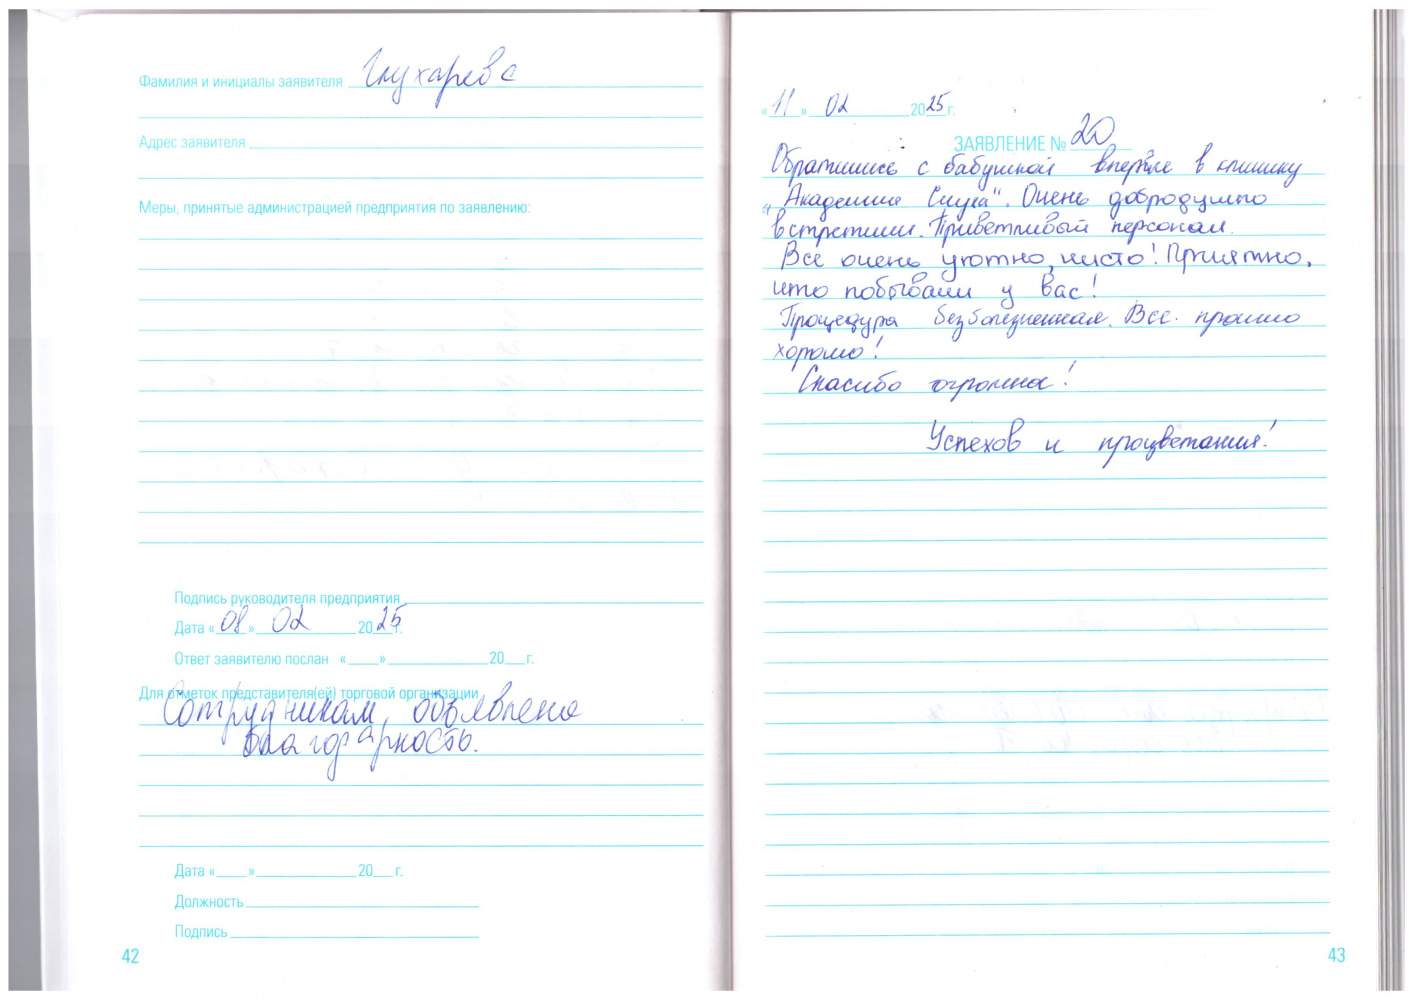 Фамилия и инициалы заявителя Глухарева
Адрес заявителя
Меры, принятые администрацией предприятия по заявлению:
Подпись руководителя предприятия
Дата «08» 02 2025г.
Ответ заявителю послан « » 20 г.
Для отметок представителя(ей) торговой организации
Сотрудникам, объявлена
благодарность.
Дата « » 20 г.
Должность
Подпись
42
«11» 02 2025г.
ЗАЯВЛЕНИЕ № 20
Обратились с бабушкой впервые в клинику
„Академия Слуха". Очень добродушно
встретили. Приветливый персонал.
Все очень уютно, чисто! Приятно,
что побывали у вас!
Процедура безболезненная. Все прошло
хорошо!
Спасибо огромное!
Успехов и процветания!
43